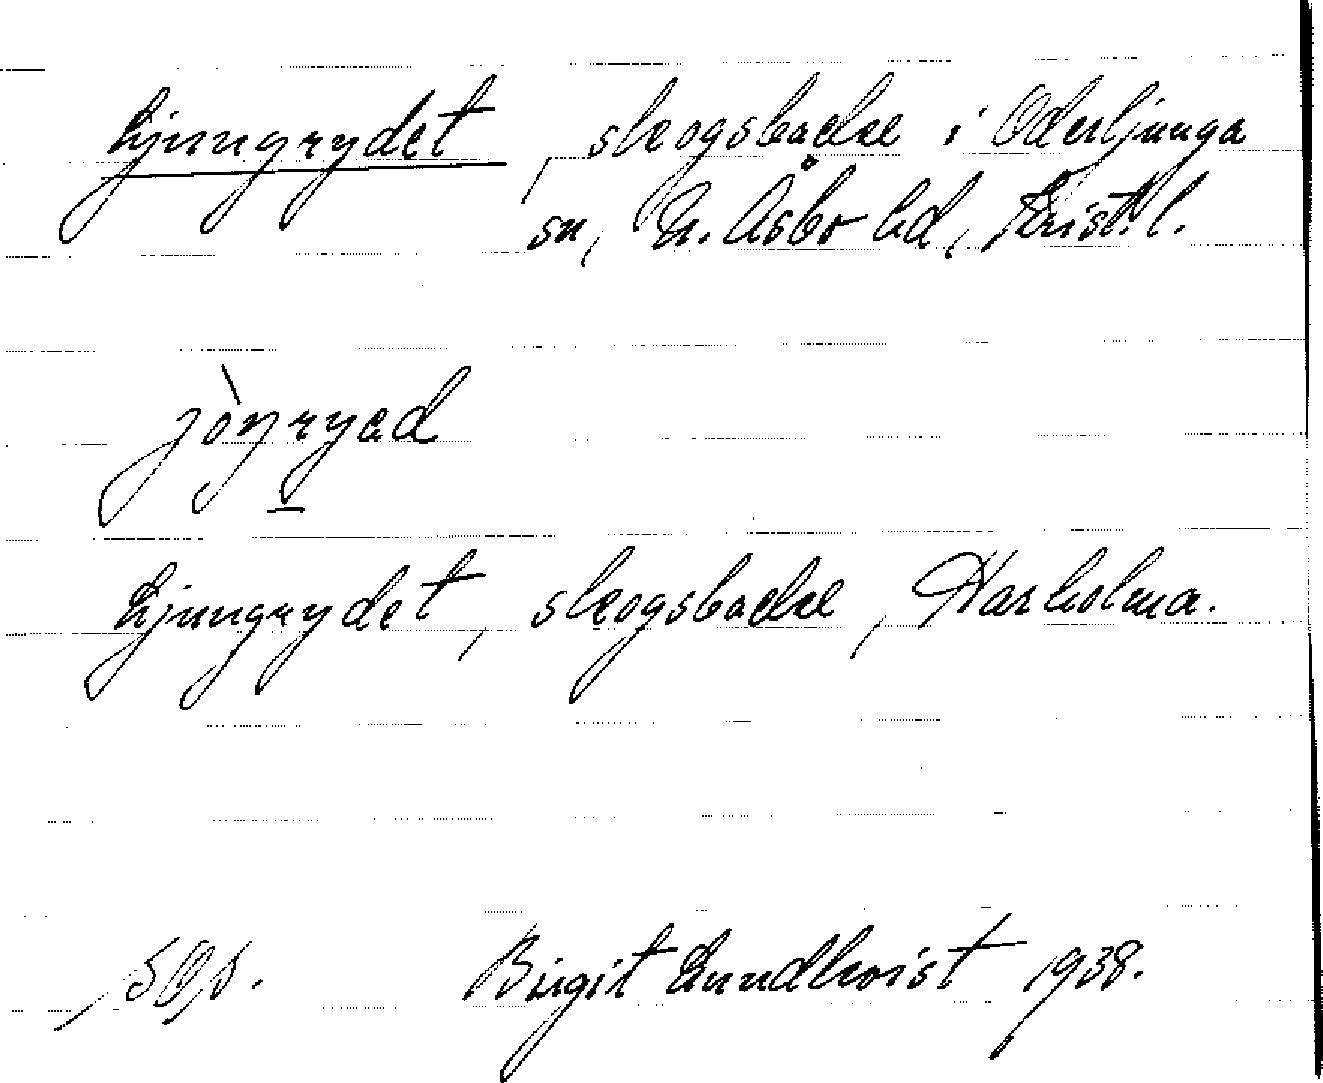 Ljungrydet, skogsbacke i Oderljunga
sn, N. Åsbo hd, Krist. l.
jòŋryad
Ljungrydet, skogsbacke, Harholma.
Birgit Lundkvist 1938.